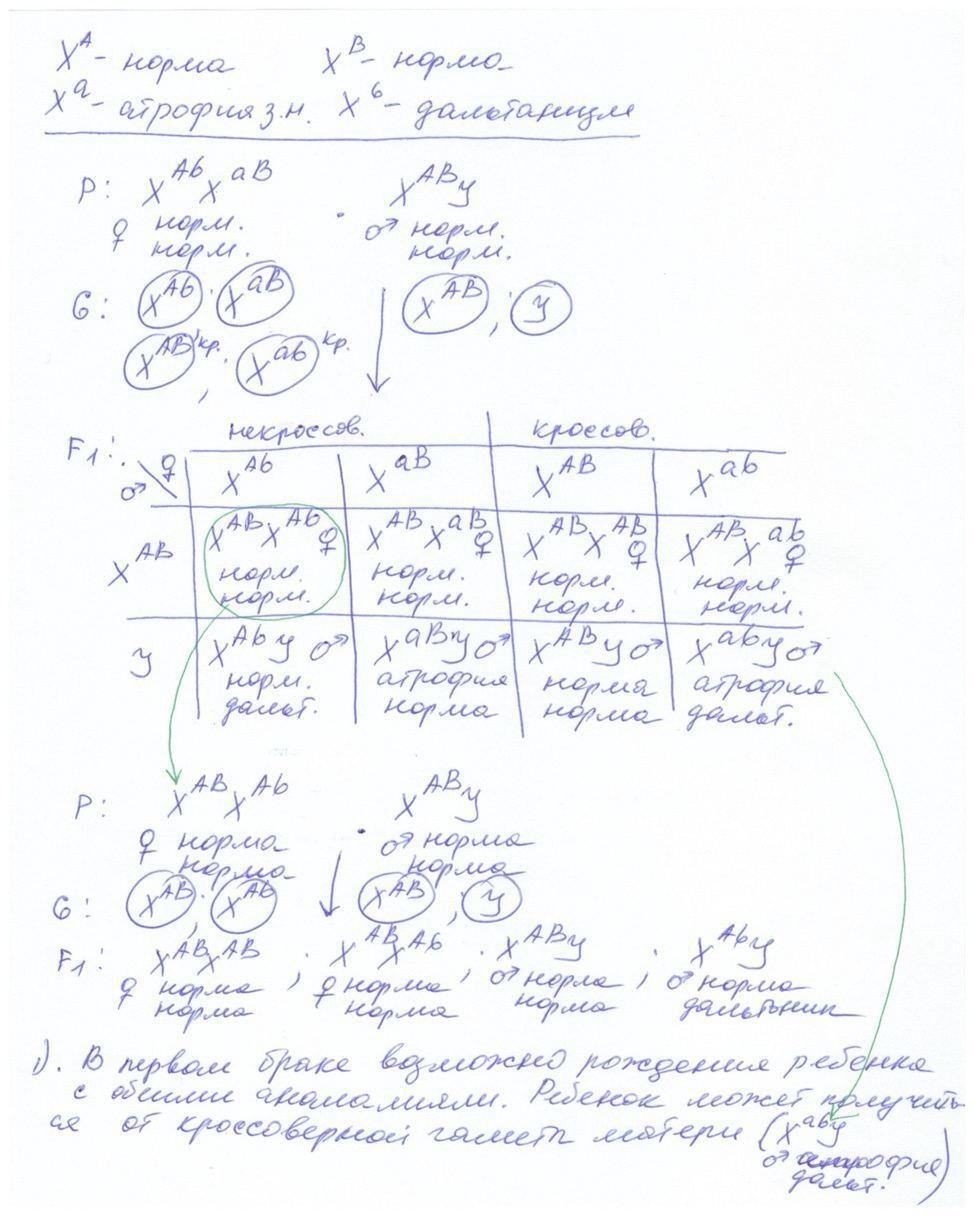 X^A - норма X^B - норма
X^a - атрофия з.н. X^b - дальтанизм
P: X^Ab X^aB X^AB y
♀ норм. ♂ норм.
норм. норм.
G: X^Ab X^aB X^AB, y
X^AB кр., X^ab кр.
F1: некроссов. кроссов.
♀ ♂ X^Ab X^aB X^AB X^ab
X^AB X^AB X^Ab ♀ X^AB X^aB ♀ X^AB X^AB ♀ X^AB X^ab ♀
норм. норм. норм. норм.
норм. норм. норм. норм.
y X^Ab y ♂ X^aB y ♂ X^AB y ♂ X^ab y ♂
норм. атрофия норма атрофия
дальт. норма норма дальт.
P: X^AB X^Ab X^AB y
♀ норма ♂ норма
норма норма
G: X^AB, X^Ab X^AB, y
F1: X^AB X^AB, X^AB X^Ab, X^AB y, X^Ab y
♀ норма ♀ норма ♂ норма ♂ норма
норма норма норма дальтоник
1). В первом браке возможно рождения ребенка
с обоими аномалиями. Ребенок может получить-
ся от кроссоверной гаметы матери (X^ab y
♂ атрофия)
дальт.